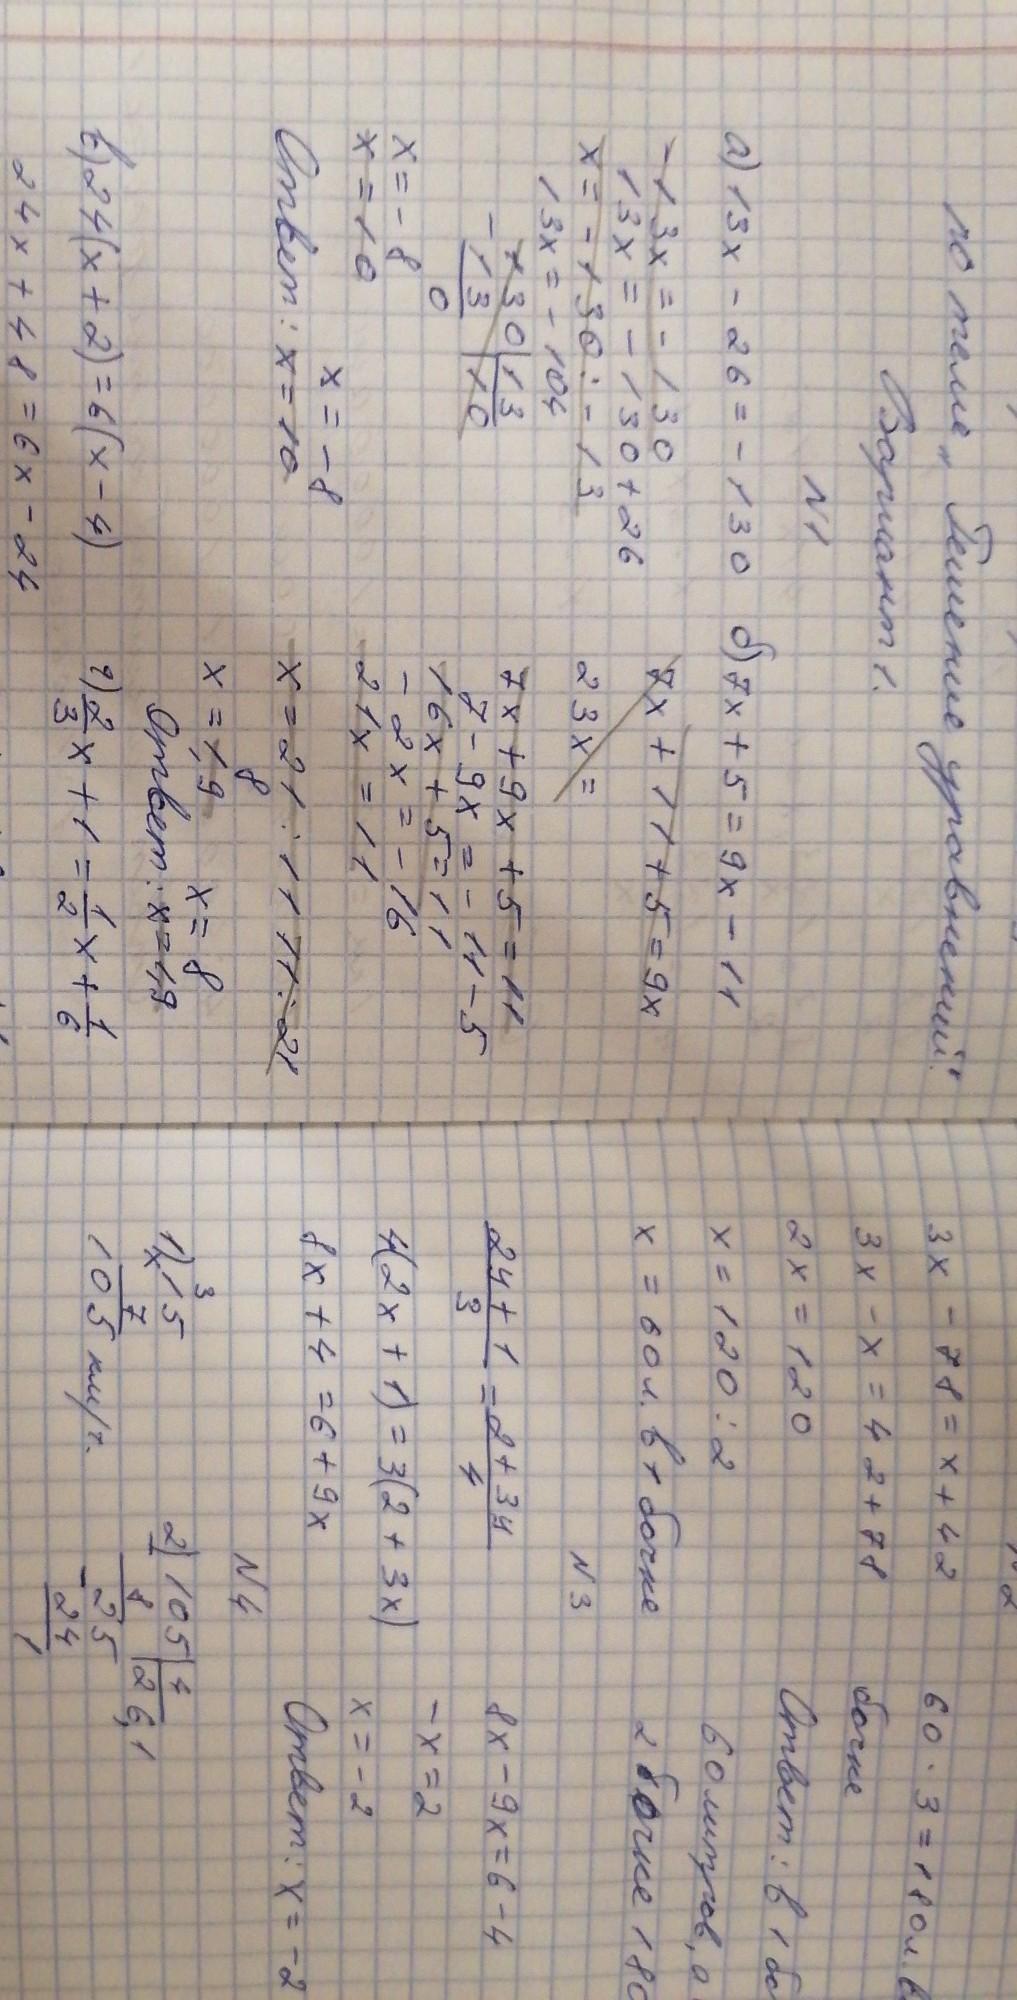 по теме „Решение уравнений."
Вариант 1.
N1
а) 13x - 26 = -130
-13x = -130
13x = -130 + 26
x = -130 : -13
13x = -104
130 | 13
- 13 | 10
0
x = -8
x = 10
x = -8
Ответ: x = 10
б) 7x + 5 = 9x - 11
7x + 11 + 5 = 9x
23x =
7x + 9x + 5 = 11
7 - 9x = -11 - 5
16x + 5 = 11
- 2x = -16
21x = 11
x = 21 : 11 11 : 21
x = 1,9
8
x = 8
Ответ: x = 1,9
в) 24(x + 2) = 6(x - 4)
24x + 48 = 6x - 24
г) 2/3 x + 1 = 1/2 x + 1/6
N2
3x - 78 = x + 42
3x - x = 42 + 78
2x = 120
x = 120 : 2
x = 60 л. в 1 бочке
60 · 3 = 180 л. в
бочке
Ответ: в 1 бо
60 литров, а
2 бочке 180
N3
24 + 1 / 3 = 2 + 34 / 4
4(2x + 1) = 3(2 + 3x)
8x + 4 = 6 + 9x
8x - 9x = 6 - 4
-x = 2
x = -2
Ответ: x = -2
N4
1) 15
3
x 7
105 км/ч.
2) 105 | 4
8 | 26,1
- 25
24
1